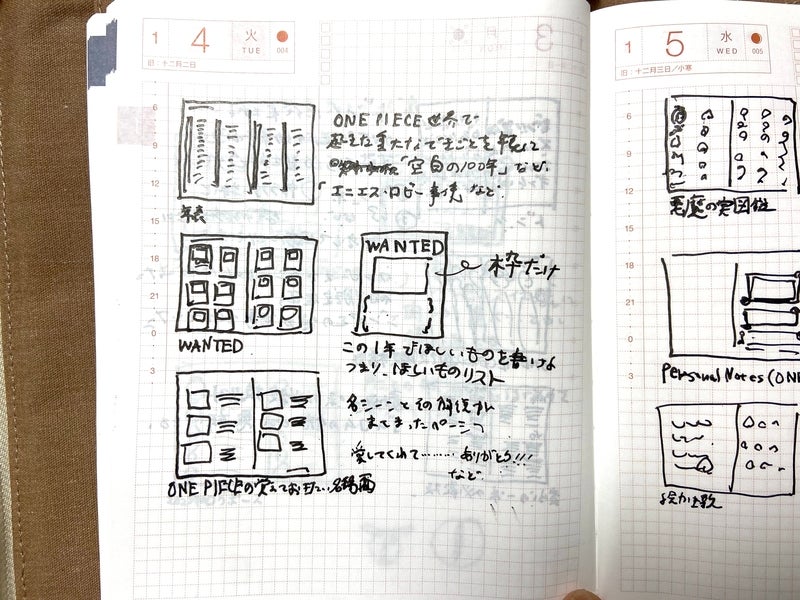 1 4 火 TUE 004
旧：十二月二日
6
9
12
15
18
21
0
3
ONE PIECE 世界で
起きた重大なできごとを年表に
「空白の100年」など、
「エニエス・ロビー事件」など
年表
WANTED
枠だけ
WANTED
この1年でほしいものを書ける
つまり、ほしいものリスト
名シーンとその解説が
まとまったページ
愛してくれて……… ありがとう!!!
など
ONE PIECEの覚えておきたい名場面
1 5 水 WED 005
旧：十二月三日／小寒
6
9
12
15
18
21
0
3
悪魔の実図鑑
Personal Notes (ONE